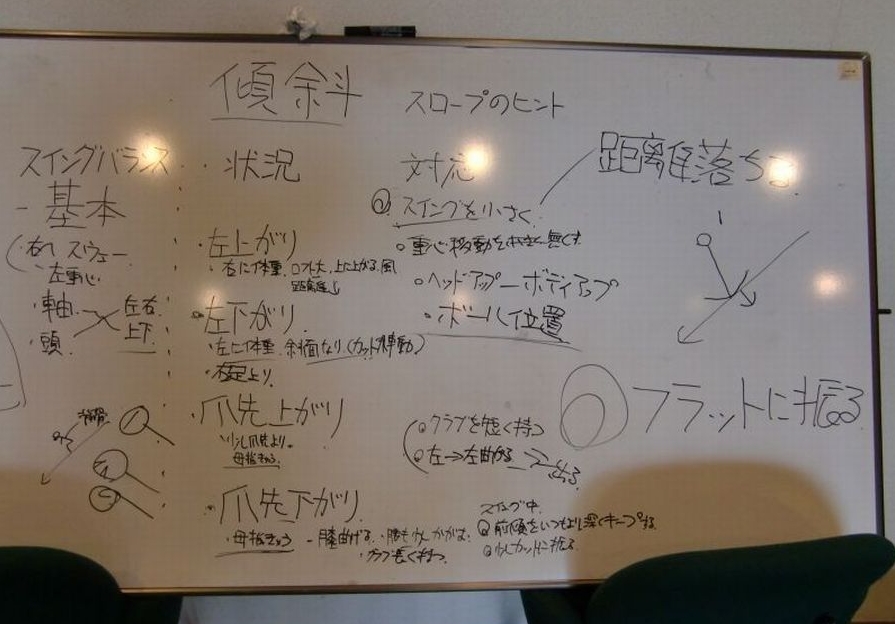 傾斜 スロープのヒント
スイングバランス ・状況 対応 距離 落ちる
- 基本 スイングを小さく
右へ スウェー ・左上がり ・重心移動を 無くす
左重心 ・右に体重 上に上がる 風 ・ヘッドアップーボディアップ
距離
・軸 左右 ・左下がり ・ボール位置
・頭 上下 ・左に体重 斜面なり(カット 動)
・右足より
・爪先上がり フラットに振る
・少し爪先より クラブを短く持つ
母指きゅう 左→左曲がる
・爪先下がり スイング中
・母指きゅう - 膝曲げる 前傾をいつもより深くキープする
・クラブ長く持つ 少しカットに振る